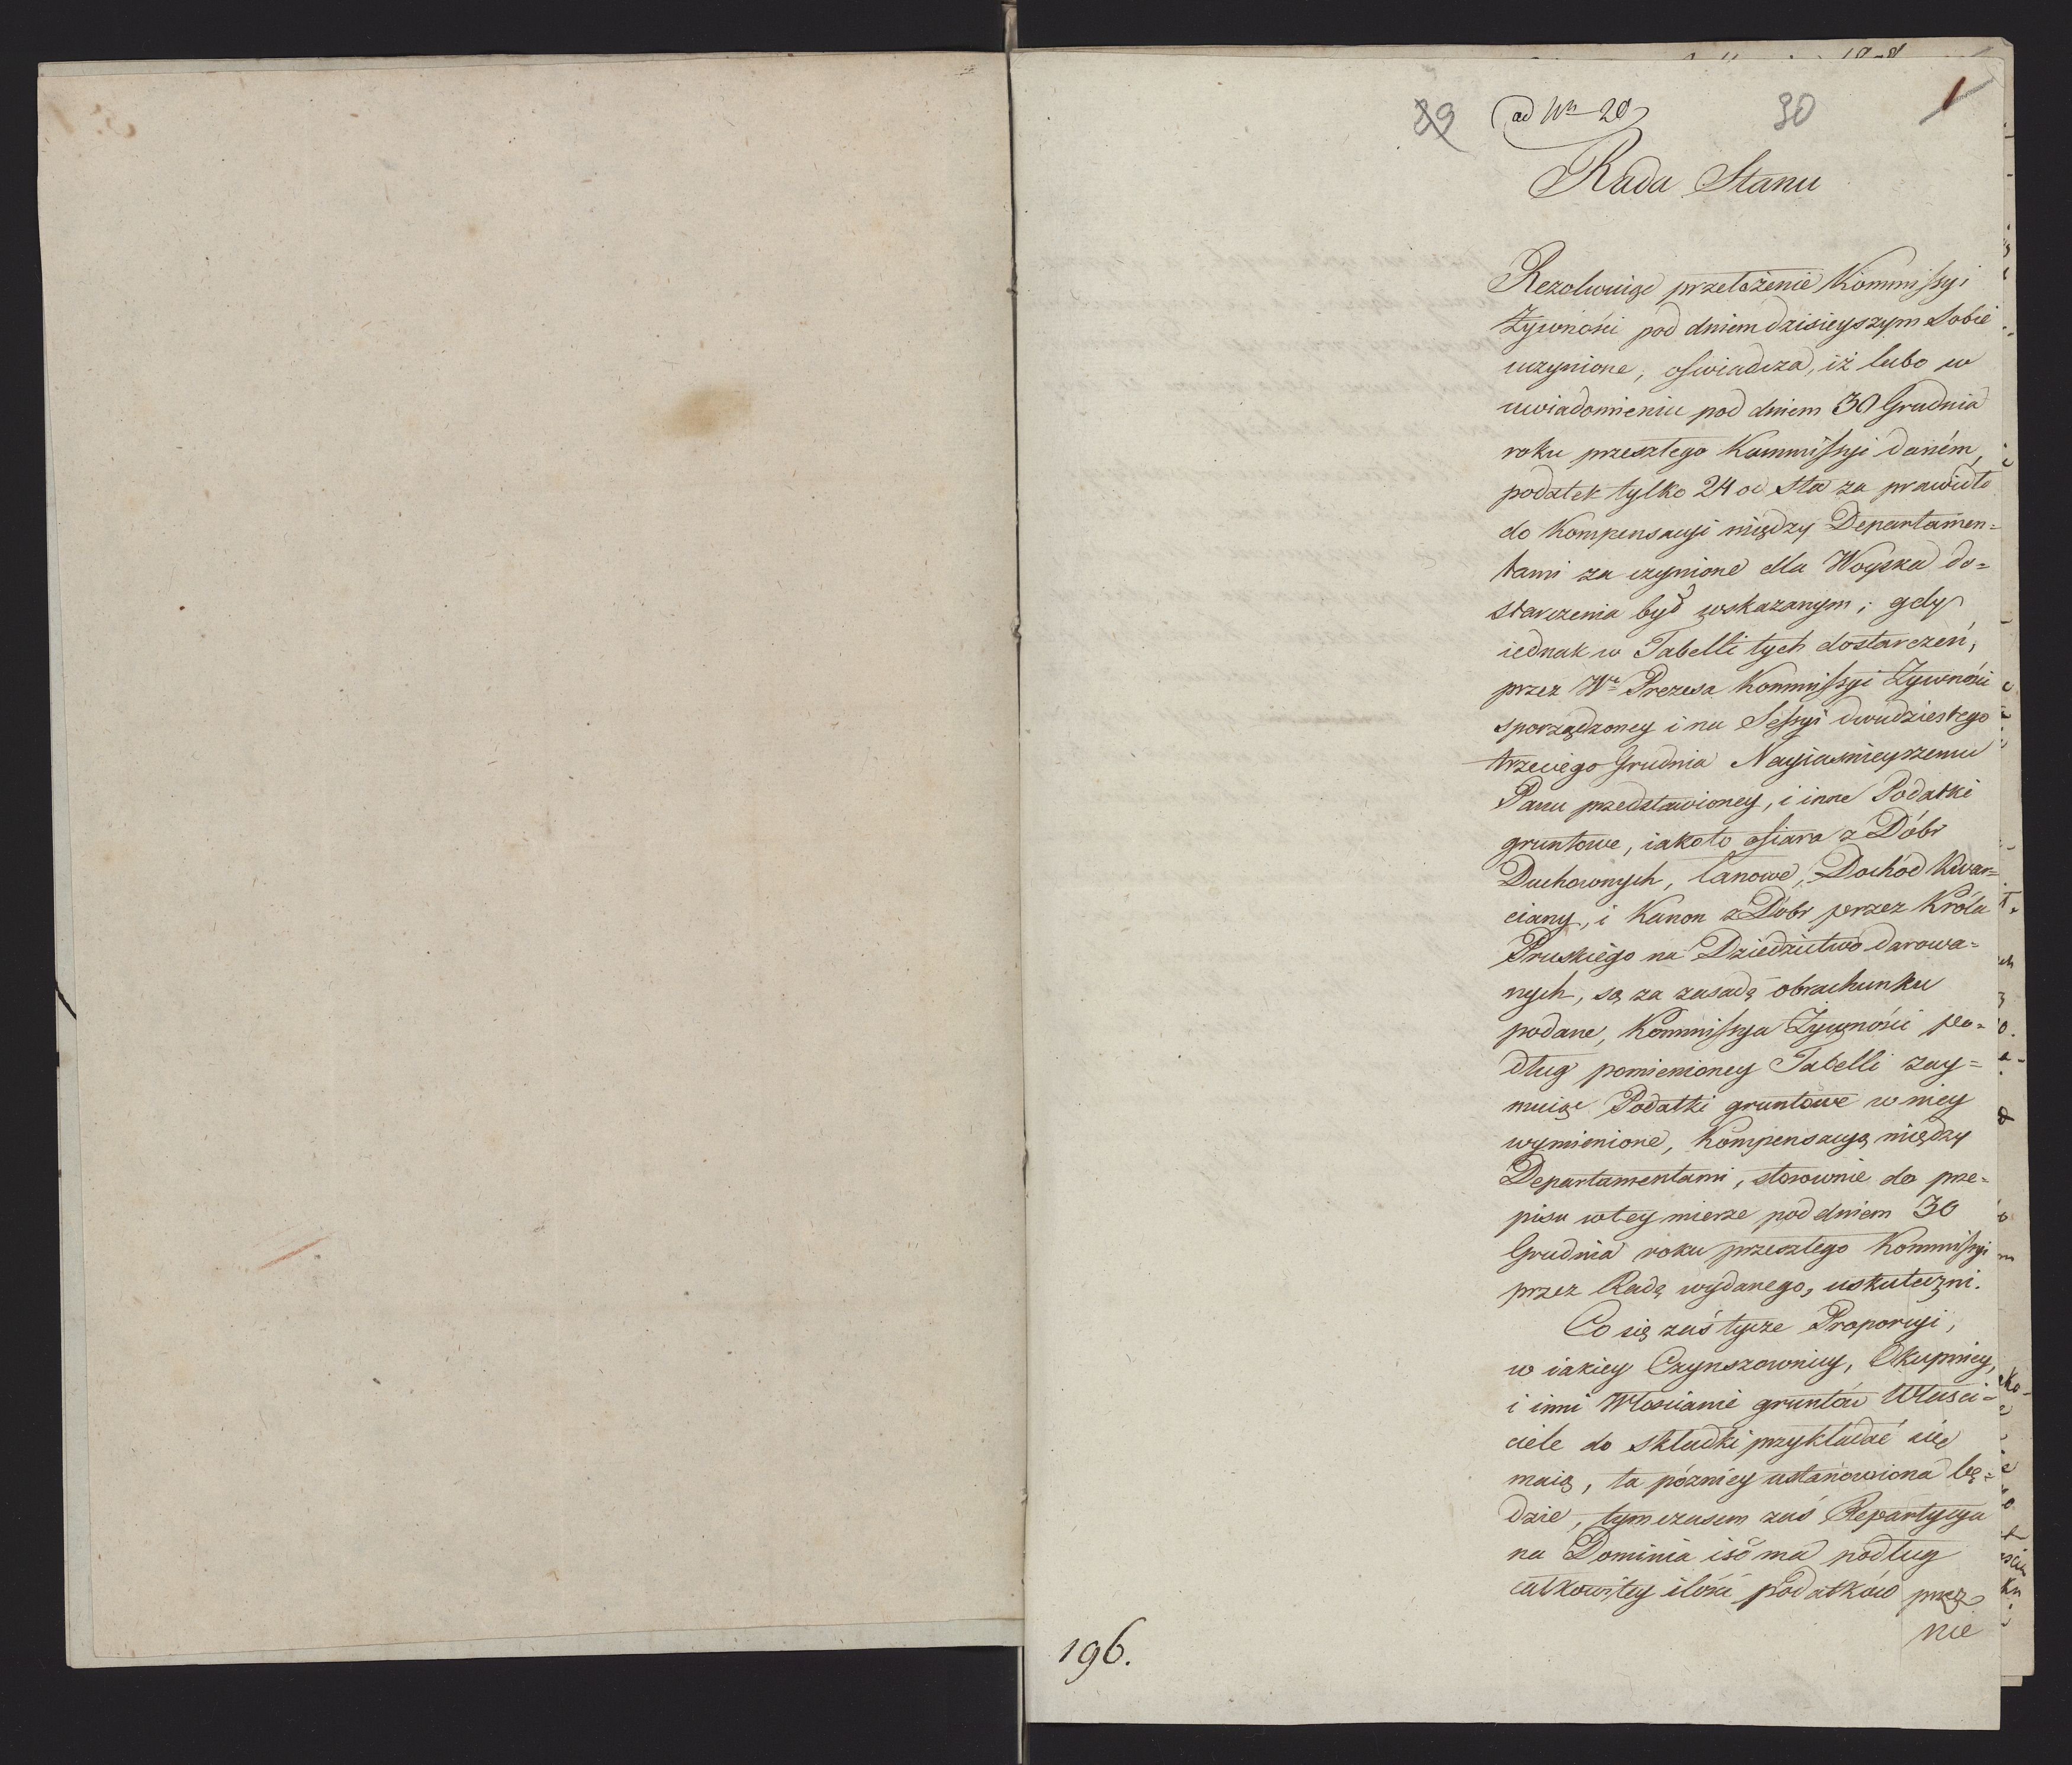 89 ad Nr 20 30 1
Rada Stanu
Rezolwuiąc przełożenie Kommissyi
Żywności pod dniem dzisieyszym Sobie
uczynione, oświadcza, iż lubo w
uwiadomieniu pod dniem 30 Grudnia
roku przeszłego Kommissyi daném,
podatek tylko 24 od Sta za prawidło
do Kompensacyi między Departamen=
tami za czynione dla Woyska do=
starczenia był wskazanym; gdy
iednak w Tabelli tych dostarczeń,
przez Wo Prezesa Kommissyi Żywności
sporządzoney i na Sessyi dwudziestego
trzeciego Grudnia Nayiasnieyszemu
Panu przedstawioney, i inne Podatki
gruntowe, iakoto ofiara z Dóbr
Duchownych, Łanowe, Dochód Kwar=
ciany, i Kanon z Dóbr przez Króla
Pruskiego na Dziedzictwo darowa=
nych, są za zasadę obrachunku
podane, Kommissya Żywności po=
dług pomienioney Tabelli zay=
muiąc Podatki gruntowe w niey
wymienione, Kompensacyą między
Departamentami, stosownie do prze=
pisu w tey mierze pod dniem 30
Grudnia roku przeszłego Kommissyi
przez Radę wydanego, uskuteczni.
Co się zaś tycze Proporcyi,
w iakiey Czynszownicy, Okupnicy,
i inni Włoscianie gruntów Właści=
ciele do składki przykładać się
maią, ta pózniey ustanowiona bę=
dzie, tymczasem zaś Repartycya
na Dominia iśč ma podług
całkowitey ilości podatków przez
nie
196.